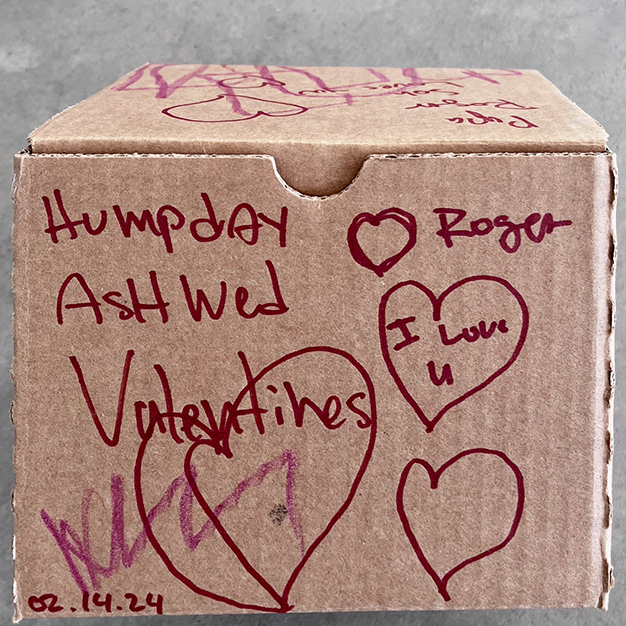 Roger
Humpday
Roger
AsH Wed
I Love
u
Valentines
02.14.24